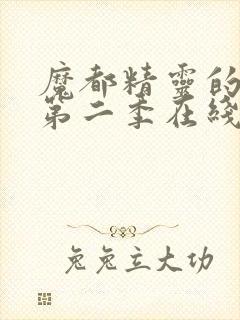 魔都精靈的
第二季在綫
兔兔立大功